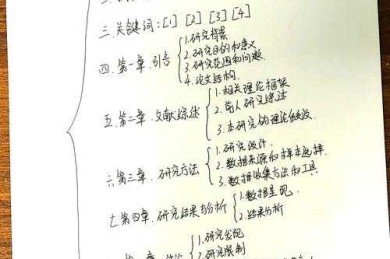 三.关键词:[1] [2] [3] [4]
四.第一章.引言
1.研究背景
2.研究目的和意义
3.研究范围和问题
4.论文结构.
五.第二章.文献综述
1.相关理论框架
2.前人研究综述
3.本研究的理论
六.第三章.研究方法
1.研究设计.
2.数据来源和样本选择.
3.数据收集方法和工具.
七.第四章.研究结果与分析
1.数据呈现.
2.结果分析
1.研究发现
2.研究限制